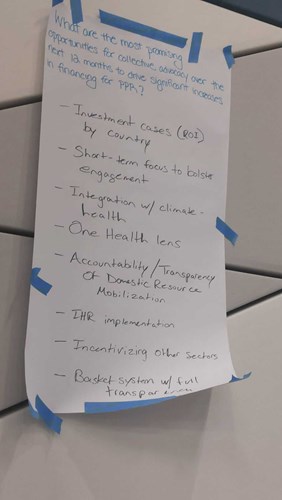 What are the most promising
opportunities for collective advocacy over the
next 18 months to drive significant increases
in financing for PPR?
- Investment cases (ROI)
by country
- Short-term focus to bolster
engagement
- Integration w/ climate-
health
- One Health lens
- Accountability/Transparency
of Domestic Resource
Mobilization
- IHR implementation
- Incentivizing other sectors
- Basket system w/ full
transparency